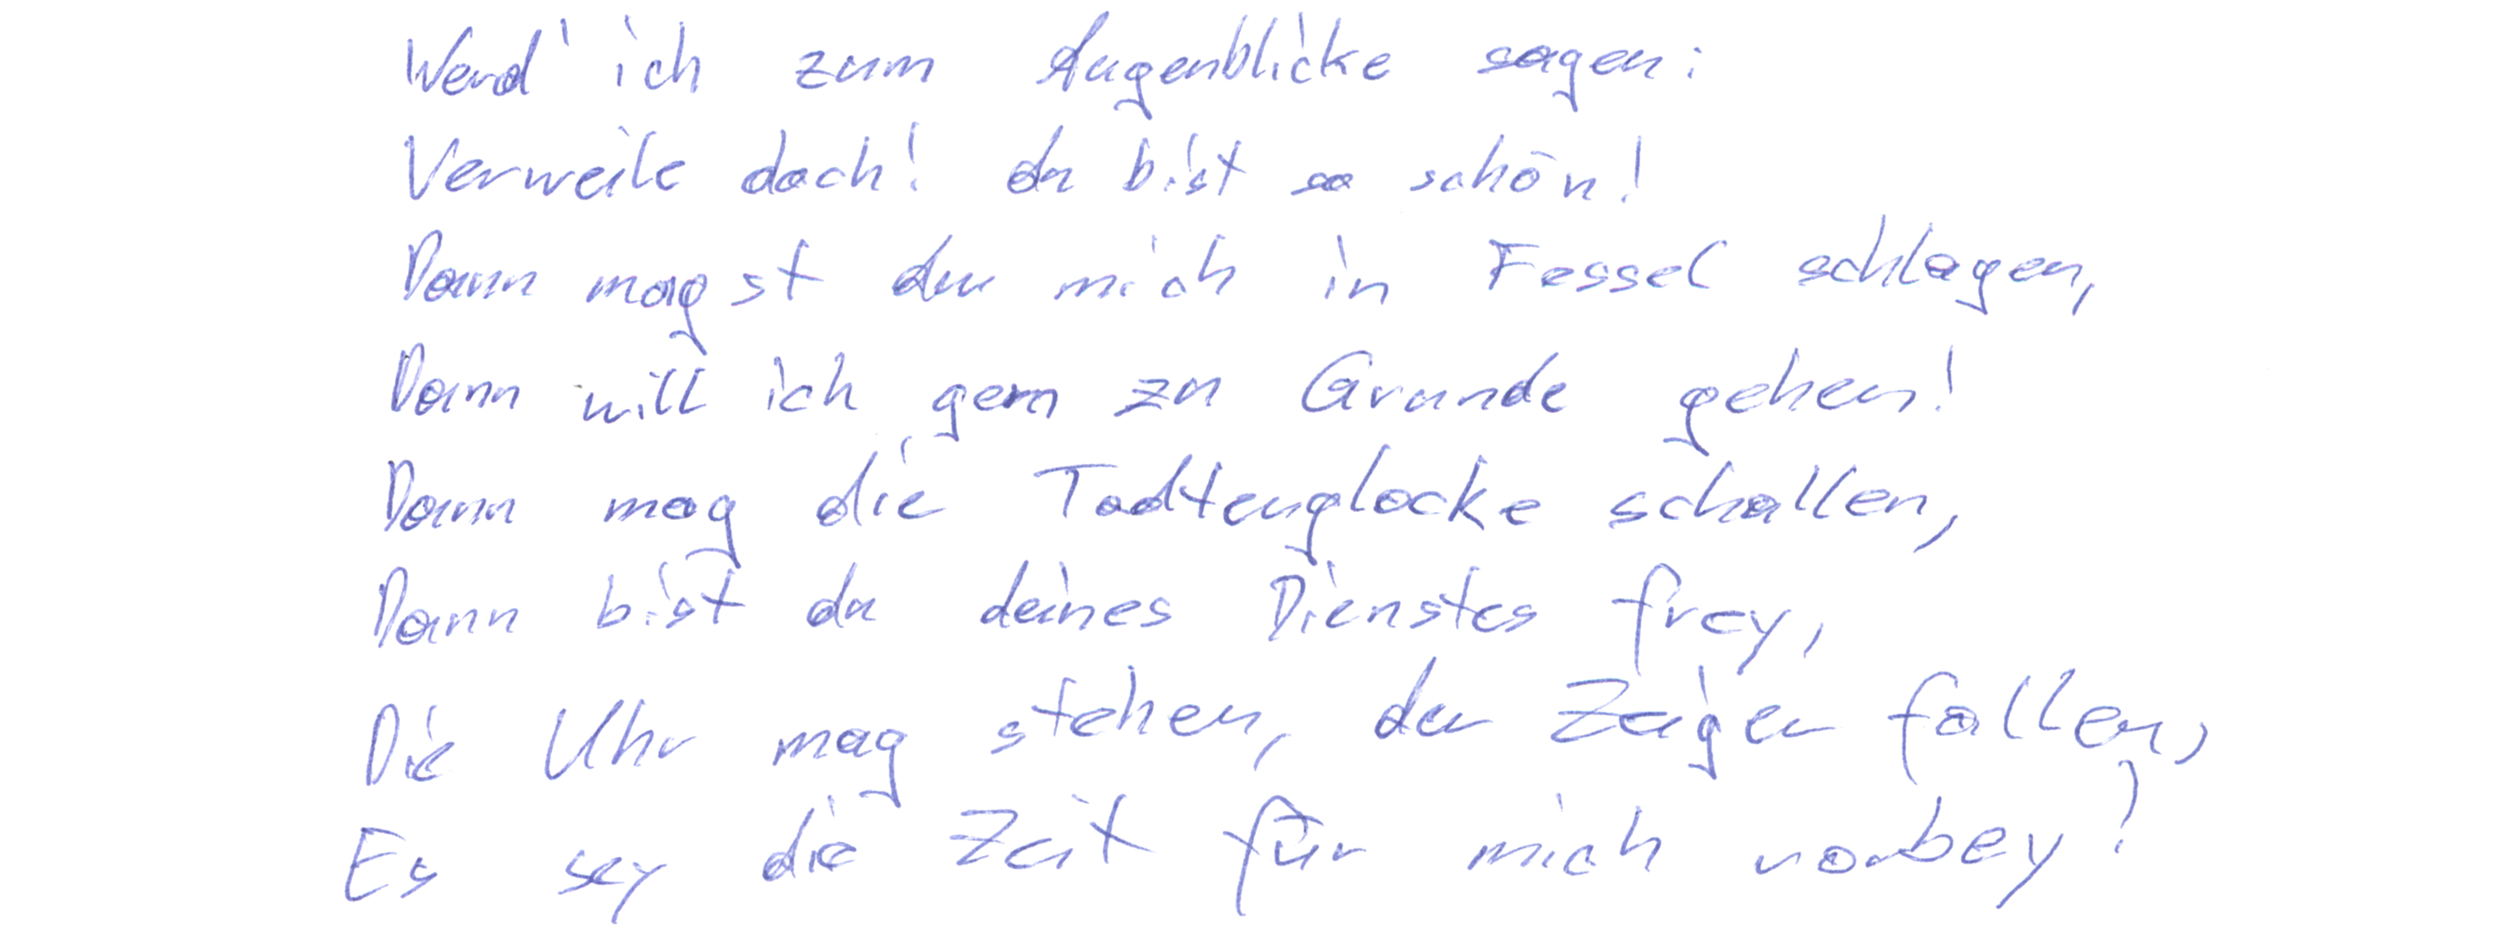 Werd' ich zum Augenblicke sagen:
Verweile doch! du bist so schön!
Dann magst du mich in Fessel schlagen,
Dann will ich gern zu Grunde gehen!
Dann mag die Todtenglocke schallen,
Dann bist du deines Dienstes frey,
Die Uhr mag stehen, der Zeiger fallen,
Es sey die Zeit für mich vorbey!